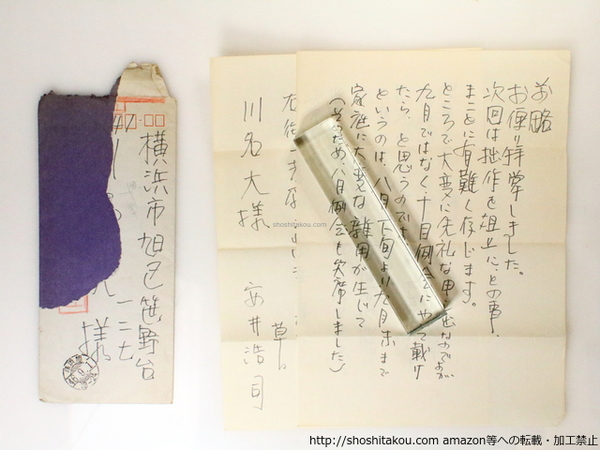 前略
お便り拝掌しました。
次回は拙作を俎上に、との事、
まことに有難く存じます。
ところで大変に失礼な申し出なのですが
九月ではなく十月例会にやって戴け
たら、と思うのですが
というのは、八月下旬より九月末まで
家庭に大変な雑用が生じて
(そのため八月例会も欠席しました)
草々
安井浩司
川名大様
横浜市旭区笹野台
様
shoshitakou.com
http://shoshitakou.com amazon等への転載・加工禁止